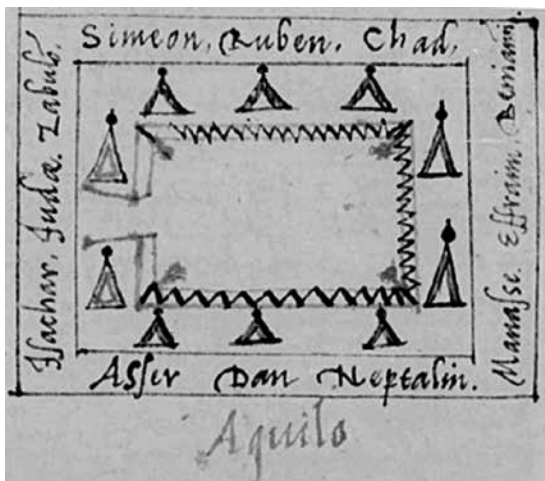 Simeon. Ruben. Chad.
Isachar. Juda. Zabulō.
Manasse. Effraim. Beniamī.
Asser Dan Neptalin.
Aquilo